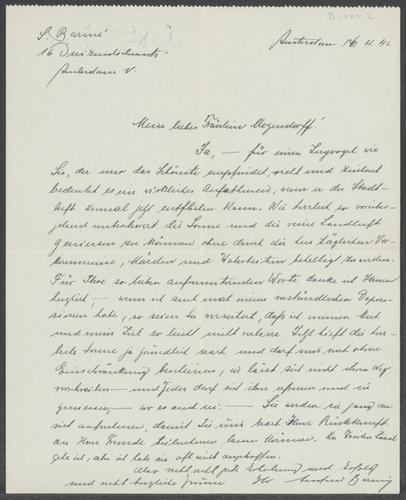 S. Barmé
16
Amsterdam Z.
Amsterdam 16 4.42
Mein liebes Fräulein Mogendorff!
Ja, — für einen Zugvogel wie
Sie, der nur das Schönste empfindet, sieht und zeichnet
bedeutet es ein wirkliches Aufatmen, wenn er der Stadt-
luft einmal entfliehen kann. Wie herrlich so vorüber-
gehend unbeschwert die Sonne und die reine Landluft
geniessen zu können ohne durch die täglichen Vor-
kommnisse, Märchen und Wahrheiten belästigt zu werden.
Für Ihre so lieben aufmunternden Worte danke ich Ihnen
herzlich, — wenn ich auch mal meine Depres-
sionen habe, so seien Sie versichert, dass ich meinen Mut
und mein Teil so leicht nicht verliere. Jetzt hilft die herr-
liche Sonne ja gründlich nach und darf uns noch ohne
Einschränkung bescheinen, sie lässt sich nicht ihren Weg
vorschreiben — und Jeder darf sich ihrer erfreuen und sie
geniessen, — wo es auch sei. — Sie werden sie ganz an
sich aufnehmen, damit Sie uns nach Ihrer Rückkunft
an Ihrer Freude teilnehmen lassen können.
gehe ich, aber ich habe sie oft nicht angetroffen.
Also recht recht gute Erholung und Erfolg
und recht herzliche Grüsse Ihr